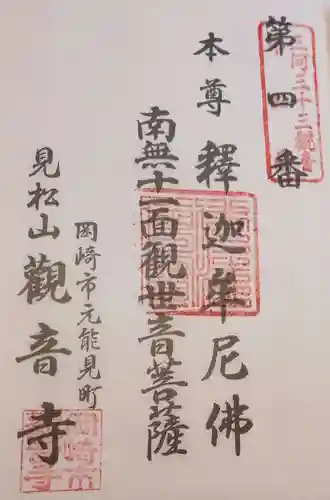 第四番
三河三十三観音
本尊 釋迦牟尼佛
南無十一面観世音菩薩
岡崎市元能見町
見松山觀音寺